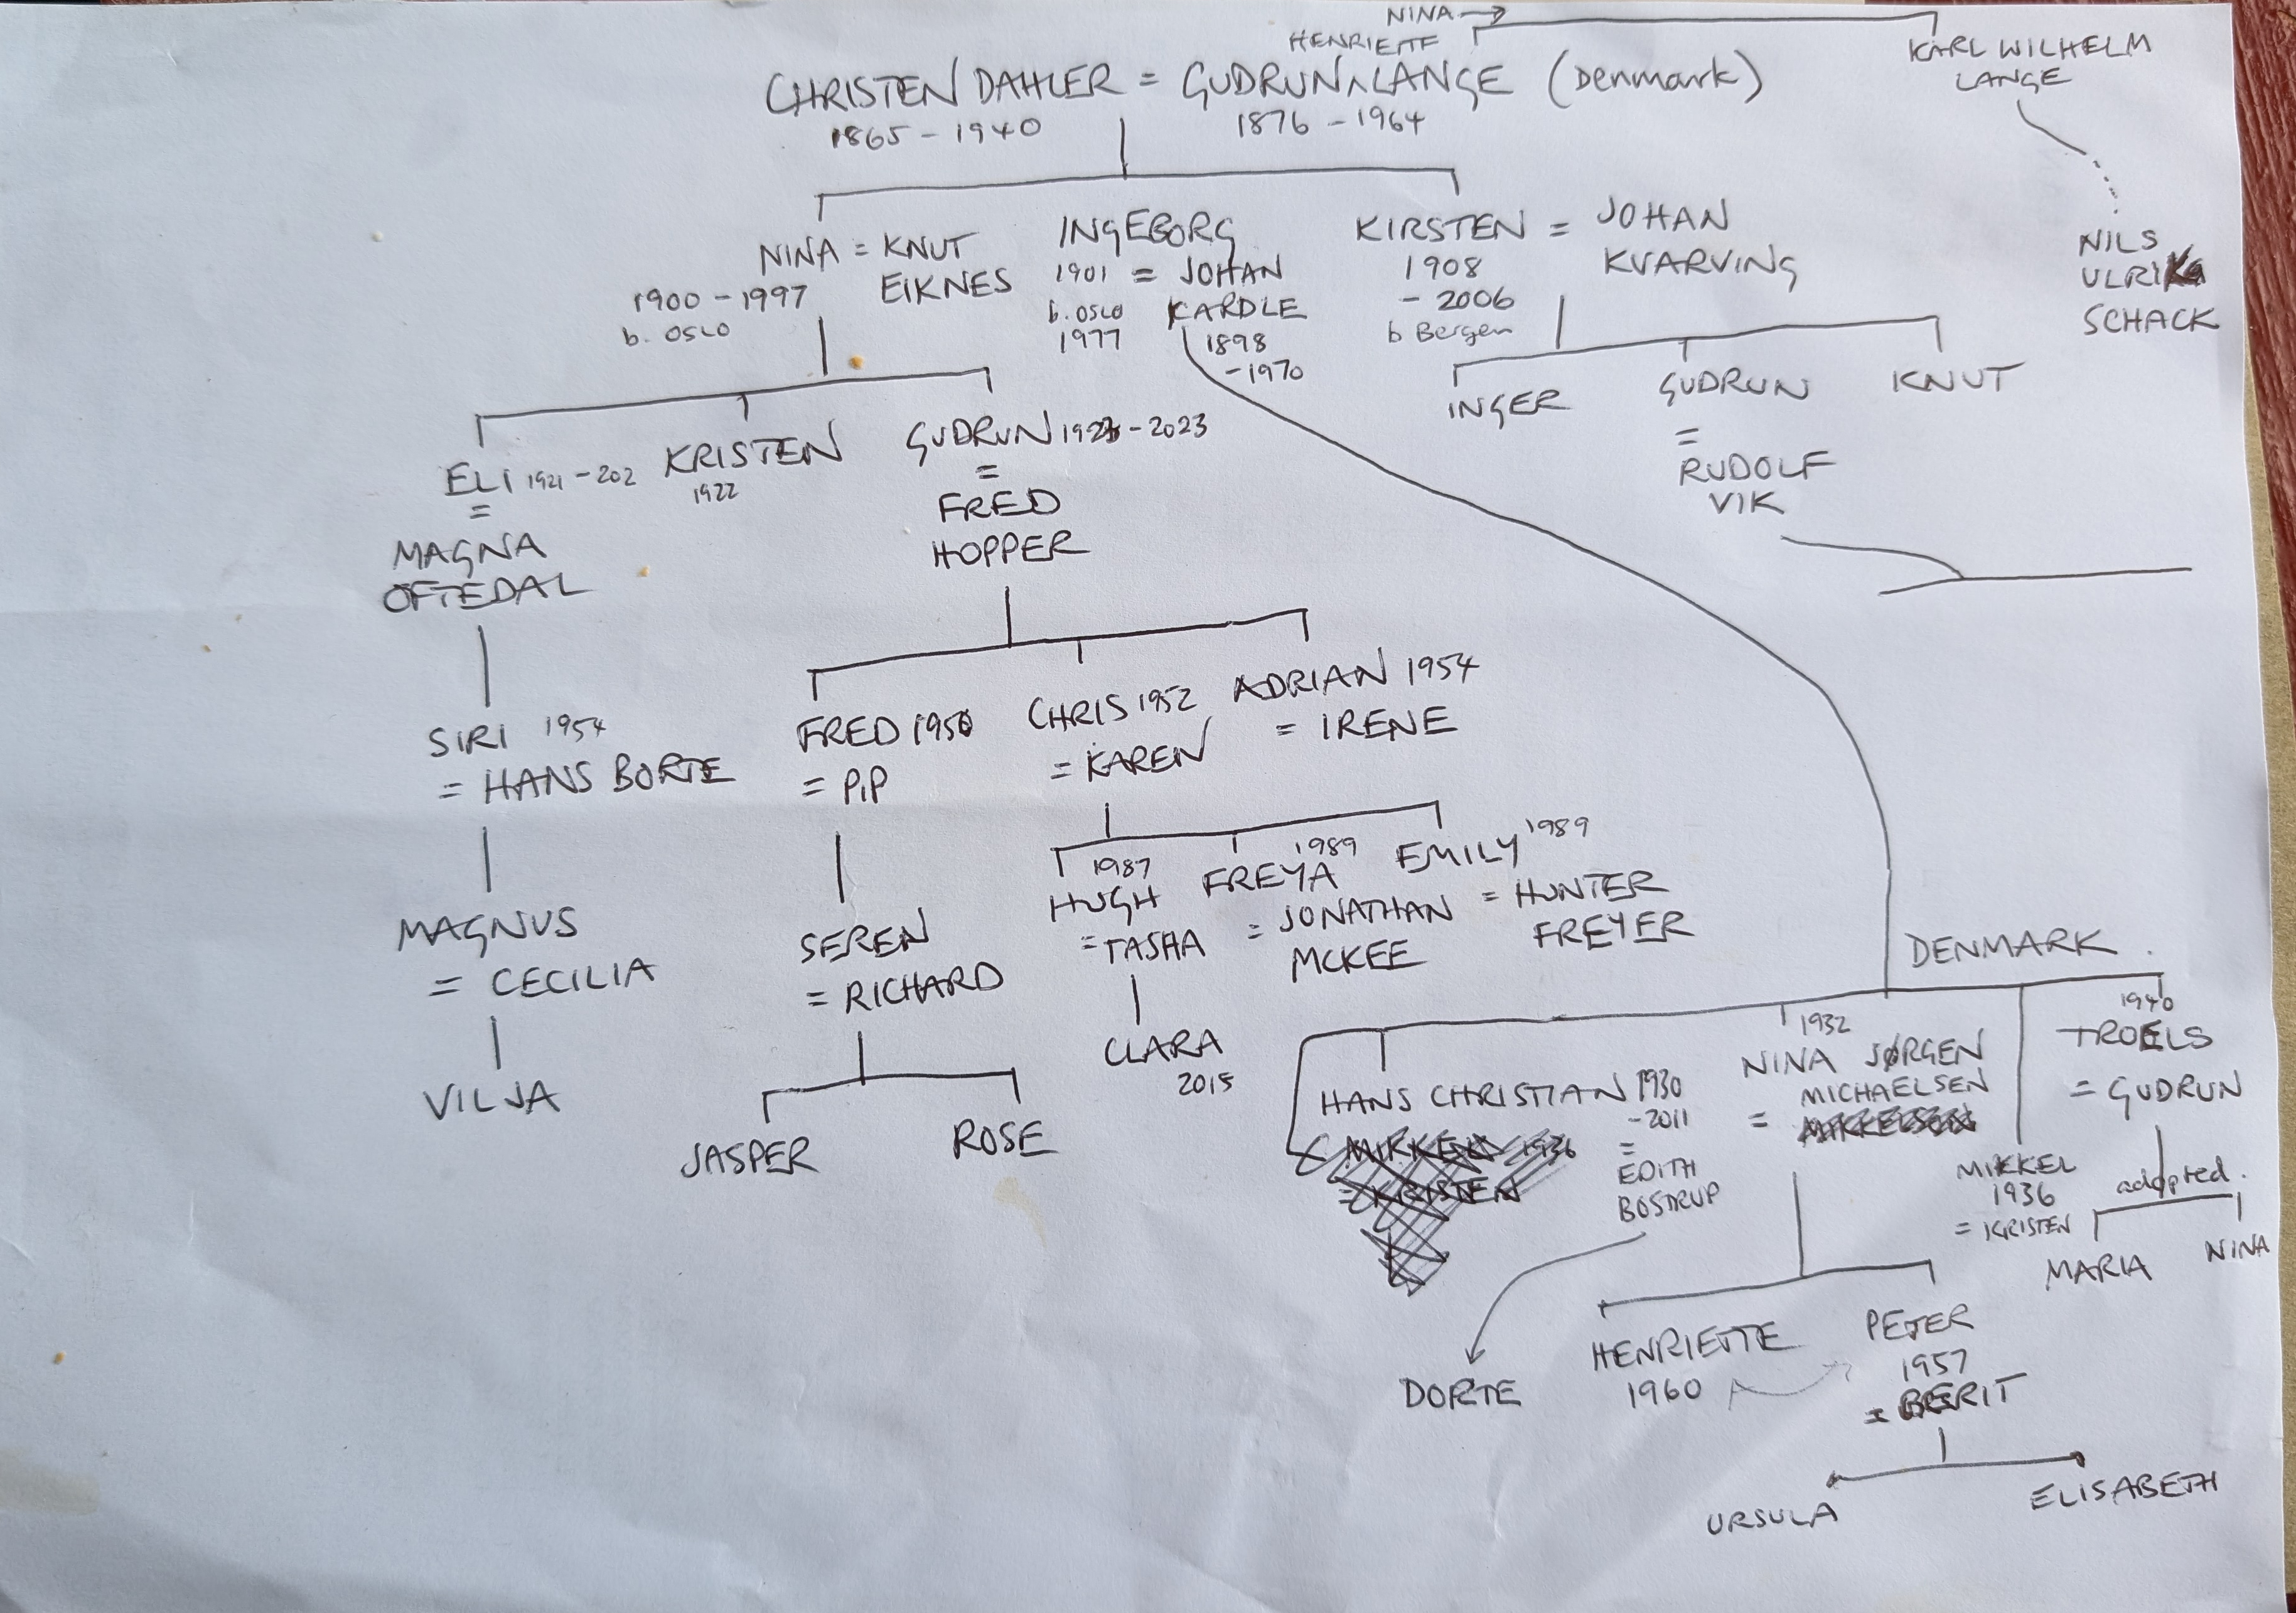 NINA →
HENRIETTE
CHRISTEN DAHLER = GUDRUN ^ LANGE (Denmark)
1865 - 1940
1876 - 1964
KARL WILHELM
LANGE
NILS
ULRIKa
SCHACK
NINA = KNUT
EIKNES
1900 - 1997
b. OSLO
INGEBORG
1901 = JOHAN
b. OSLO KARDLE
1977 1898
-1970
KIRSTEN = JOHAN
KVARVING
1908
- 2006
b Bergen
INGER
GUDRUN
=
RUDOLF
VIK
KNUT
ELI 1921 - 202
=
MAGNA
OFTEDAL
KRISTEN
1922
GUDRUN - 2023
=
FRED
HOPPER
SIRI 1954
= HANS BORTE
FRED 1950
= PIP
CHRIS 1952
= KAREN
ADRIAN 1954
= IRENE
MAGNUS
= CECILIA
SEREN
= RICHARD
1987
HUGH
= TASHA
1989
FREYA
= JONATHAN
MCKEE
EMILY 1989
= HUNTER
FREYER
VILJA
JASPER
ROSE
CLARA
2015
DENMARK.
HANS CHRISTIAN 1930
-2011
=
EDITH
BOSTRUP
MIKKEL 1936
= KRISTEN
1932
NINA JØRGEN
= MICHAELSEN
MIKKELSEN
MIKKEL
1936
= KRISTEN
1940
TROELS
= GUDRUN
adopted.
MARIA
NINA
DORTE
HENRIETTE
1960
PETER
1957
= BERIT
URSULA
ELISABETH